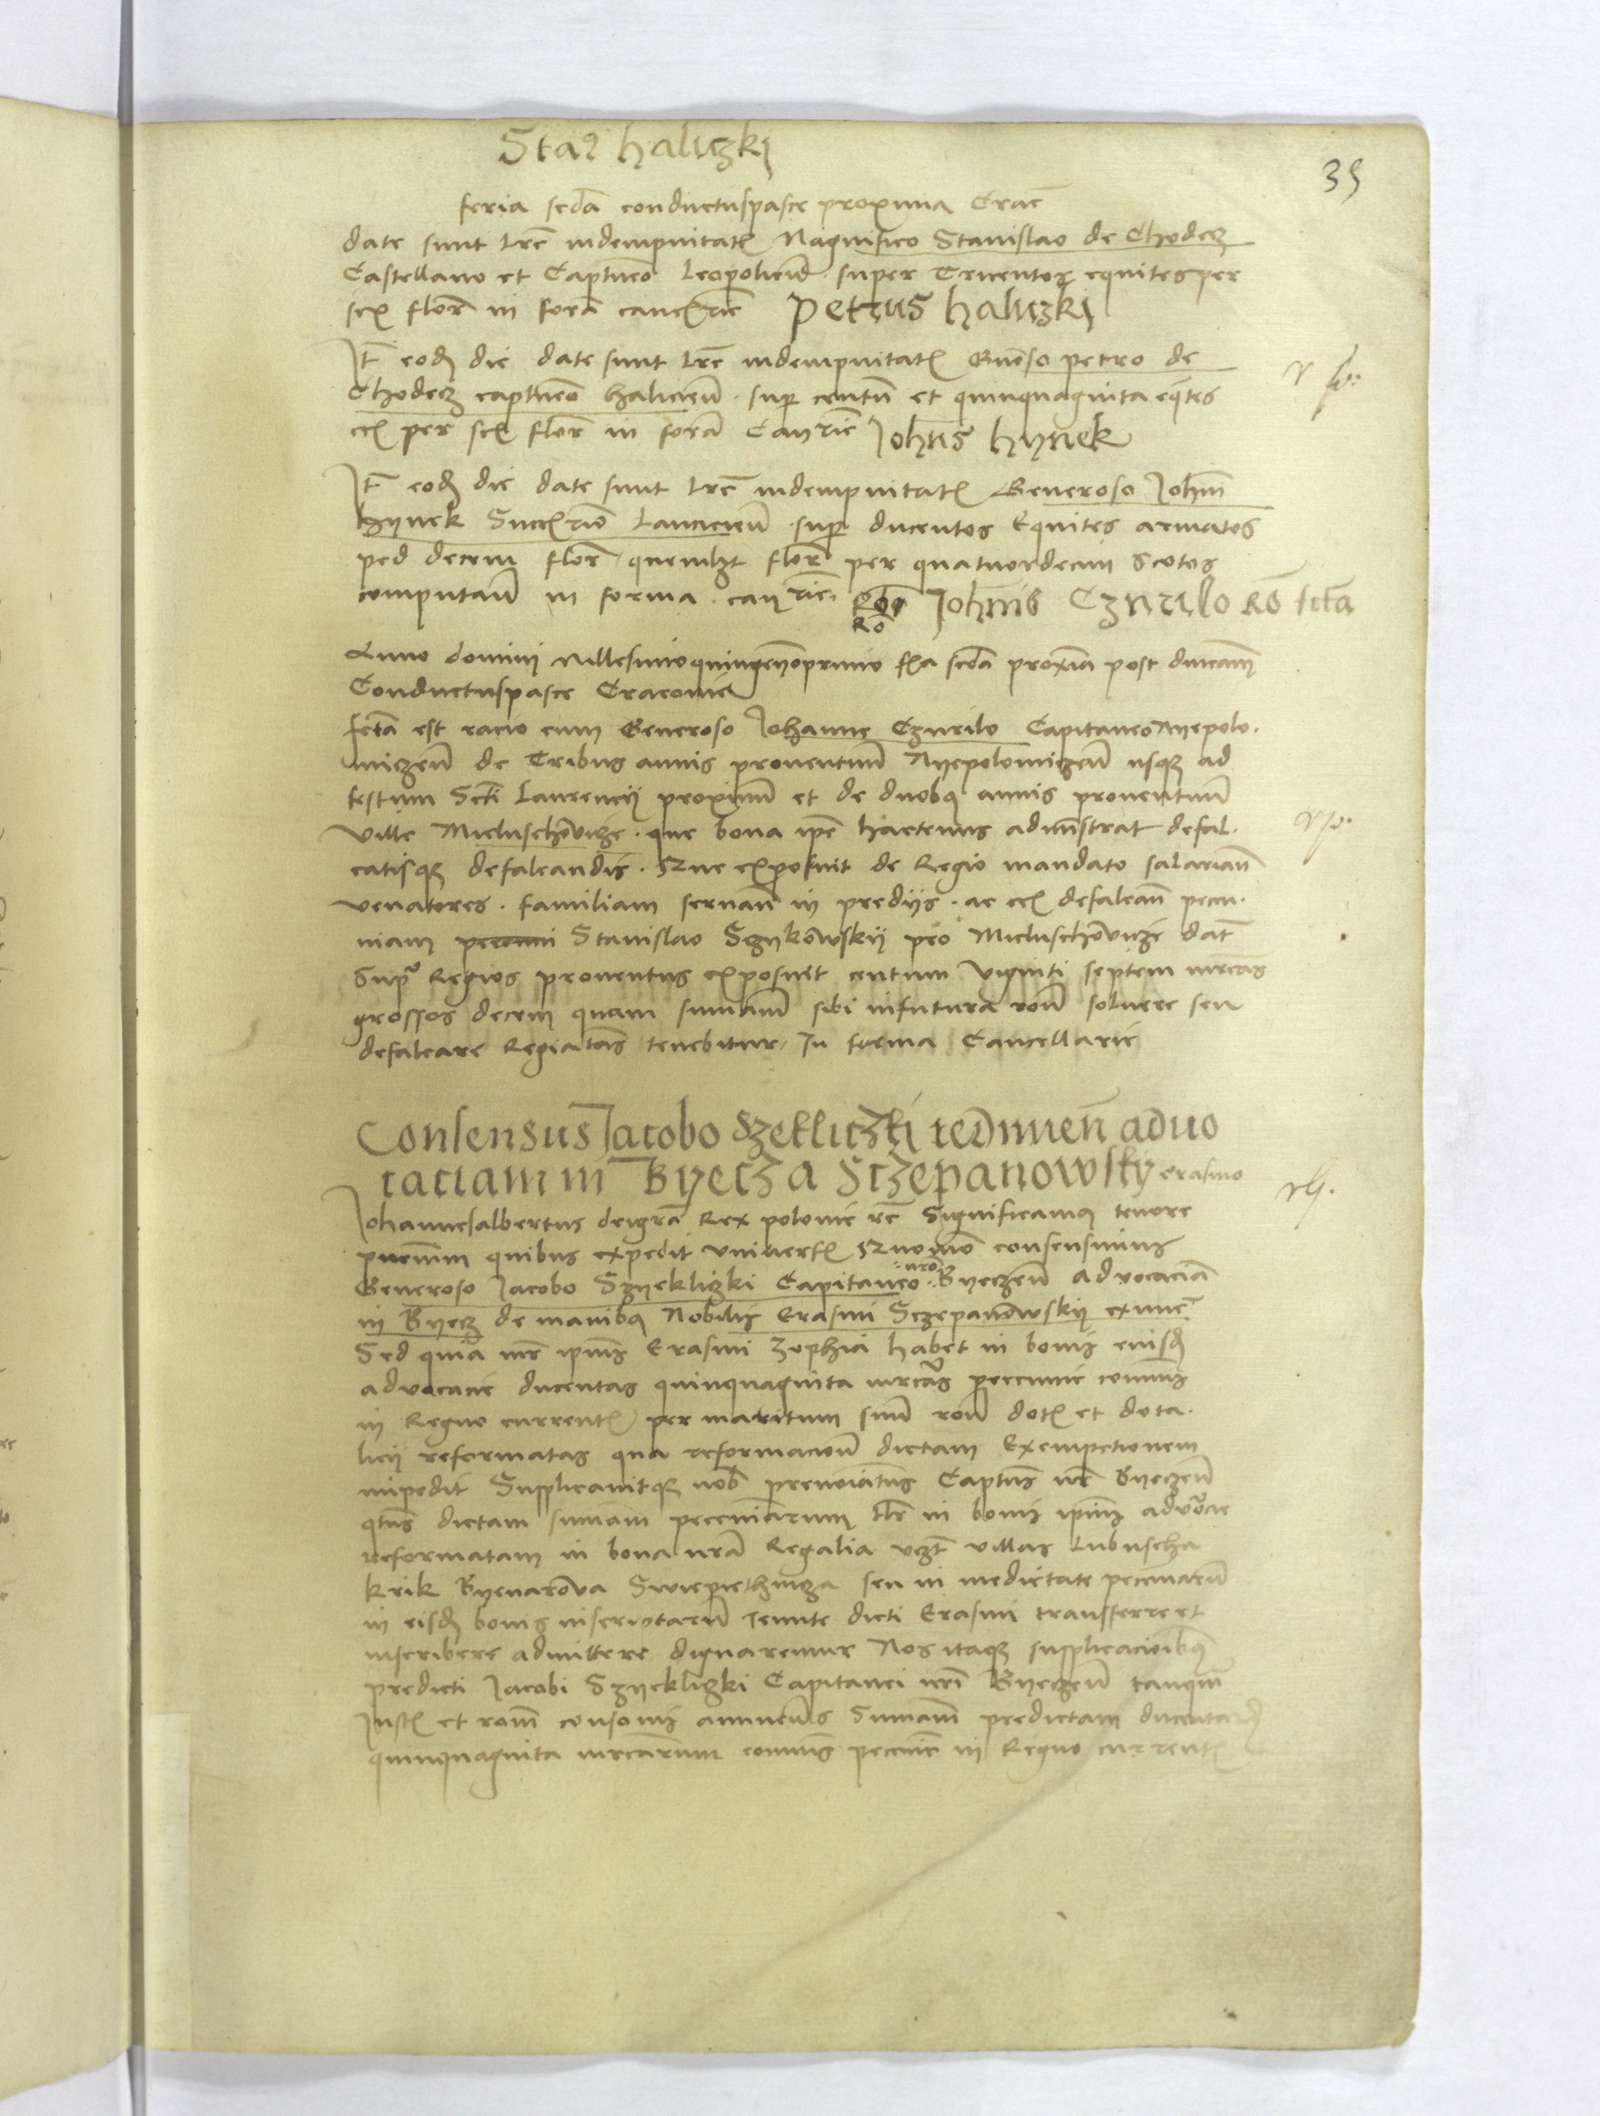 Sta⁹ haliczkj
35
feria scda conductuspasce proxima Crac
date sunt lre indempnitatis Magnifico Stanislao de Chodecz
Castellano et Capitneo leopolien super Trecentos equites per
sex flor in forma cancrie Petrus haliczkj
It eodem die date sunt lre indempnitatis Gnoso petro de
Chodecz capitneo halicien sup centum et quinquaginta eqites
per sex flor in forma Canrie Johnis hynek
It eodem die date sunt lre indempnitatis Generoso Johni
hynek Succrio lancicien sup ducentos Equites armatos
ped decem flor quemlzt flor per quatuordecim scotos
computan in forma canrie. Ro Johnis Czurilo Ro fcta
Anno dominj Millesimo quingenoprimo fia scda proxia post dnicam
Conductuspasce Cracovie
fcta est racio cum Generoso Johanne Czurilo Capitaneo Nyepolo.
miczen de Tribus annis proventuum Nyepolomiczen usqz ad
festum Scti laurencij proximum et de duobus annis proventuum
ville Micluschowicze. que bona ipe hactenus adminstrat defal.
catisqz defalcandis. Que exposuit de Regio mandato salarian
venatores. familiam servan in predijs. ac defalcan pecu.
niam Stanislao Szykowskij pro Micluschowicze dat
Supra Regios proventus exposuit centum viginti septem mrcas
grossos decem quam summam sibi in futura ron solvere seu
defalcare Regia tas tenebitur In forma Cancellarie
Consensus Jacobo Szekliczki redimen aduo
caciam in Byecz a Sczepanowsky erasmo
Johannesalbertus dei gra Rex polonie rc Significamus tenore
pncium quibus expedit universis Quomo consensimus
nro
Generoso Jacobo Szyeklizki Capitaneo Byeczen advocacia
in Byecz de manibus Nobilis Erasmi Sczepanowskij eximere
Sed quia mr ipius Erasmi Zophia habet in bonis eiusd
advocacie ducentas quinquaginta mrcas peccunie comunis
in Regno currentis per maritum suum ron dotis et dota.
licij reformatas qua reformacion dictam Exempcionem
impedit Supplicavitqz nob prenoiatus Captus nr Byeczen
qtus dictam summam pecceniarum in bonis ipius advocacie
reformatam in bona nra Regalia vczt villas lubuscha
krik Byenarowa Swieprethniza seu in medietate peccniarum
in eisd bonis inscriptarum dicti Erasmi transferre et
inscribere admittere dignaremur Nos itaqz supplicacionibus
predicti Jacobi Szyeklizki Capitanei nri Byeczen tanqm
Justis et roni consonis annuens Summam predictam ducentarum
quinquaginta mrcarum comunis peccnie in Regno currentis